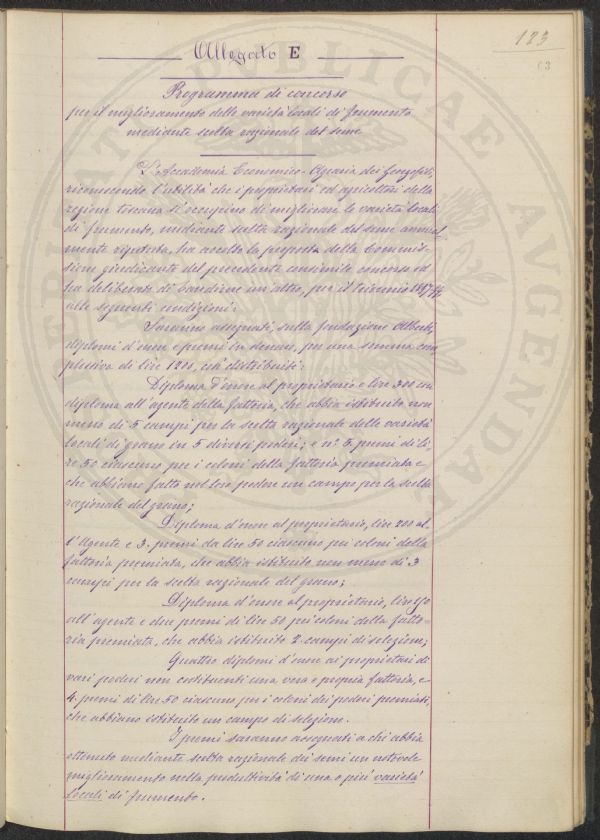 183
63
Allegato E
Programma di concorso
per il miglioramento delle varietà locali di frumento
mediante scelta razionale del seme
L'Accademia Economico-Agraria dei Georgofili,
riconoscendo l'utilità che i proprietari ed agricoltori della
regione toscana si occupino di migliorare le varietà locali
di frumento, mediante scelta razionale del seme annual
mente ripetuta, ha accolto la proposta della Commis-
sione giudicante del precedente consimile concorso ed
ha deliberato di bandirne un'altro, per il triennio
alle seguenti condizioni:
Saranno assegnati, sulla fondazione Alberti,
diplomi d'onore e premi in denaro, per una somma com
plessiva di lire 1200, così distribuiti:
Diploma d'onore al proprietario e lire 300 con
diploma all'agente della fattoria, che abbia istituito non
meno di 5 campi per la scelta razionale delle varietà
locali di grano in 5 diversi poderi; e n° 5 premi di li,
re 50 ciascuno per i coloni della fattoria premiata e
che abbiano fatto nel loro podere un campo per la scelta
razionale del grano;
Diploma d'onore al proprietario, lire 200 al,
l'Agente e 3. premi da lire 50 ciascuno pei coloni della
fattoria premiata, che abbia istituito non meno di 3
campi per la scelta razionale del grano;
Diploma d'onore al proprietario, lire
all'agente e due premi di lire 50 pei coloni della fatto=
ria premiata, che abbia istituito 2. campi di selezione;
Quattro diplomi d'onore ai proprietari di
vari poderi non costituenti una vera e propria fattoria, e
4. premi di lire 50 ciascuno per i coloni dei poderi premiati,
che abbiano istituito un campo di selezione.
I premi saranno assegnati a chi abbia
ottenuto mediante scelta razionale dei semi un notevole
miglioramento nella produttività di una o più varietà
locali di frumento.